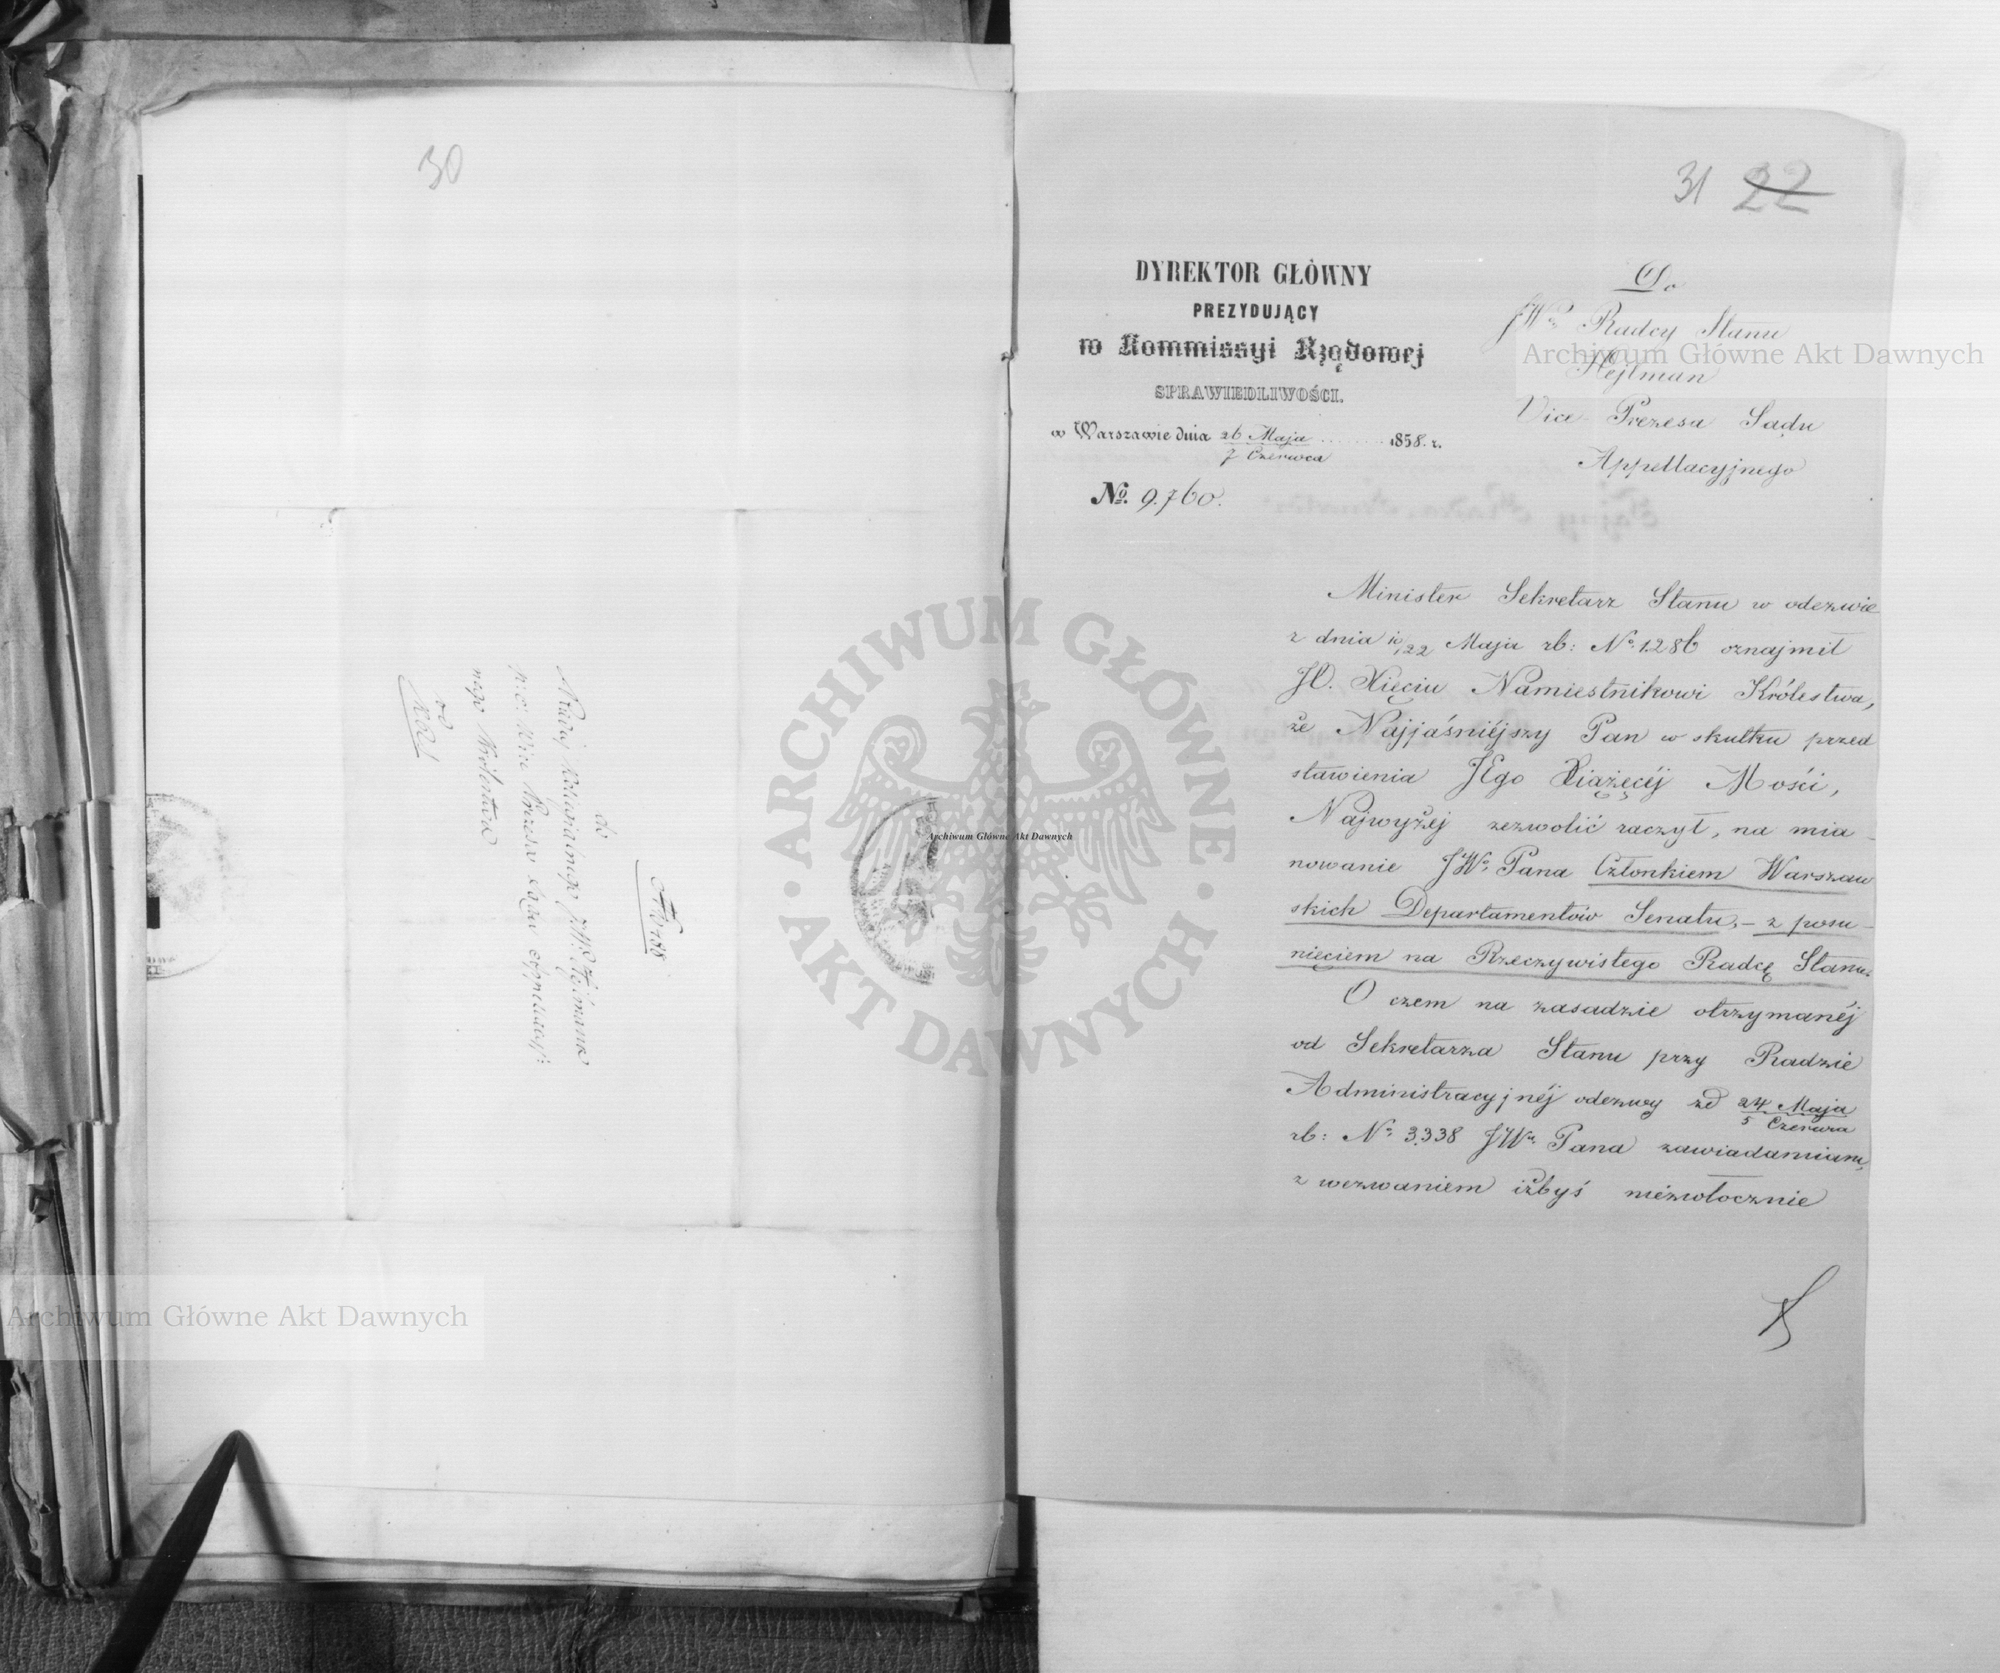 30
do
od
31 22
DYREKTOR GŁÓWNY
PREZYDUJĄCY
w Kommissyi Rządowej
SPRAWIEDLIWOŚCI.
w Warszawie dnia 26 Maja / 7 Czerwca 1858. r.
No. 9.760.
Do
JWo Radcy Stanu
Hejlman
Vice Prezesa Sądu
Appellacyjnego
Minister Sekretarz Stanu w odezwie
z dnia 10/22 Maja rb: No 1286 oznajmił
JO. Xięciu Namiestnikowi Królestwa,
że Najjaśniéjszy Pan w skutku przed
stawienia JEgo Xiążęcéj Mości,
Najwyżej zezwolić raczył, na mia-
nowanie JWo Pana Członkiem Warszaw
skich Departamentów Senatu, - z posu-
nięciem na Rzeczywistego Radcę Stanu.
O czem na zasadzie otrzymanéj
od Sekretarza Stanu przy Radzie
Administracyjnéj odezwy zd 24 Maja / 5 Czerwca
rb: No 3.338 JWo Pana zawiadamiam,
z wezwaniem iżbyś niezwłocznie
Archiwum Główne Akt Dawnych
Archiwum Główne Akt Dawnych
Archiwum Główne Akt Dawnych
ARCHIWUM GŁÓWNE AKT DAWNYCH